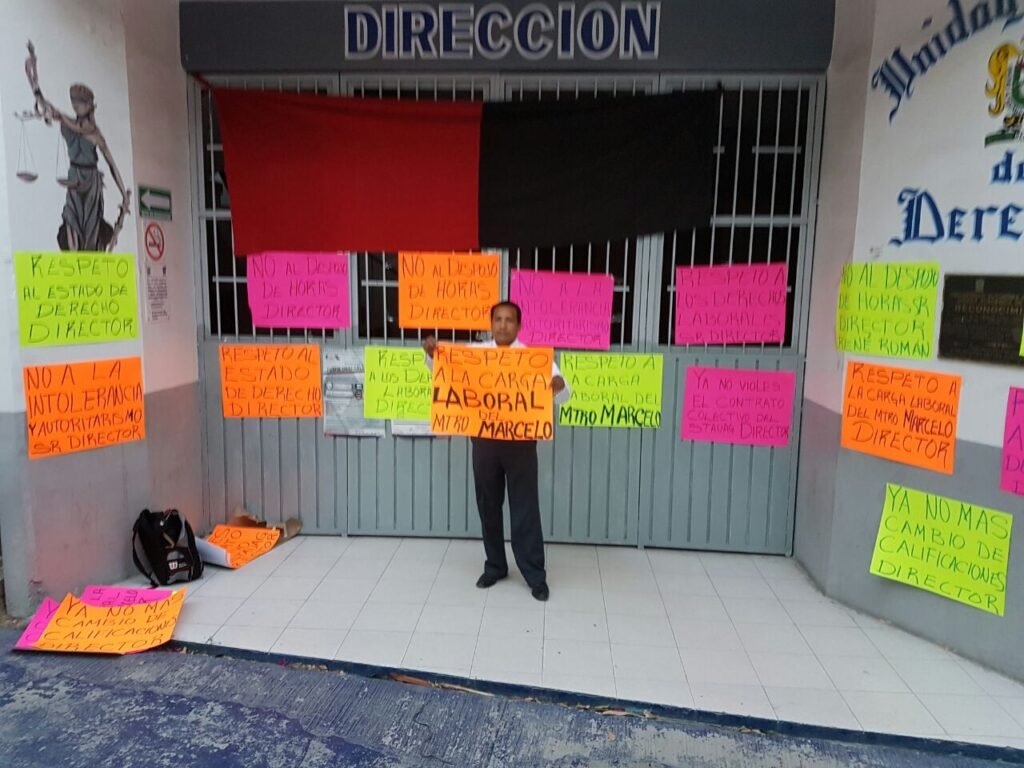 DIRECCION
Unidad
de
Dere
RESPETO
AL ESTADO DE
DERECHO
DIRECTOR
NO A LA
INTOLERANCIA
Y AUTORITARISMO
SR DIRECTOR
NO AL DESPOJO
DE HORAS
DIRECTOR
NO AL DESPOJO
DE HORAS
DIRECTOR
NO A LA
INTOLERANCIA
AUTORITARISMO
DIRECTOR
RESPETO A
LOS DERECHOS
LABORALES
SR DIRECTOR
NO AL DESPOJO
DE HORAS SR
DIRECTOR
RENÉ ROMÁN
RESPETO AL
ESTADO DE
DE DERECHO
DIRECTOR
RESPE
A LOS DER
LABORA
DIREC
RESPETO
A LA CARGA
LABORAL
DEL
MTRO MARCELO
RESPETO A
LA CARGA
LABORAL DEL
MTRO MARCELO
YA NO VIOLES
EL CONTRATO
COLECTIVO DEL
STAUAG DIRECTOR
RESPETO A
LA CARGA LABORAL
DEL MTRO MARCELO
DIRECTOR
YA NO MAS
CAMBIO DE
CALIFICACIONES
DIRECTOR
YA NO MAS
CAMBIO DE
CALIFICACIONES
DIRECTOR